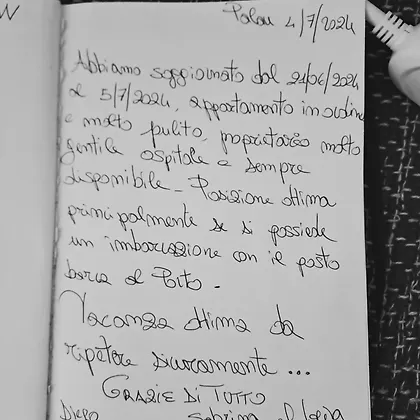 Palau 4/7/2024
Abbiamo soggiornato dal 21/06/2024
al 5/7/2024, appartamento in ordine
e molto pulito, proprietario molto
gentile ospitale e sempre
disponibile - Posizione ottima
principalmente se si possiede
un imbarcazione con il posto
barca al Porto.
Vacanza ottima da
ripetere sicuramente ...
GRAZIE DI TUTTO
Diego Sabrina